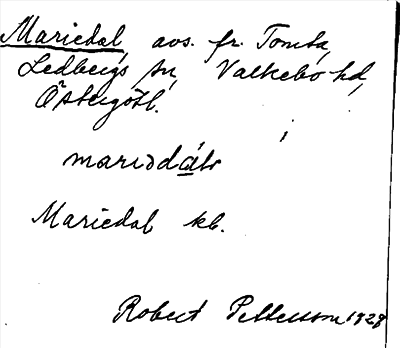 Mariedal, avs. fr. Tomta,
Ledbergs sn, Valkebo hd,
Östergötl.
marıdd
Mariedal kb.
Robert Pettersson 1928